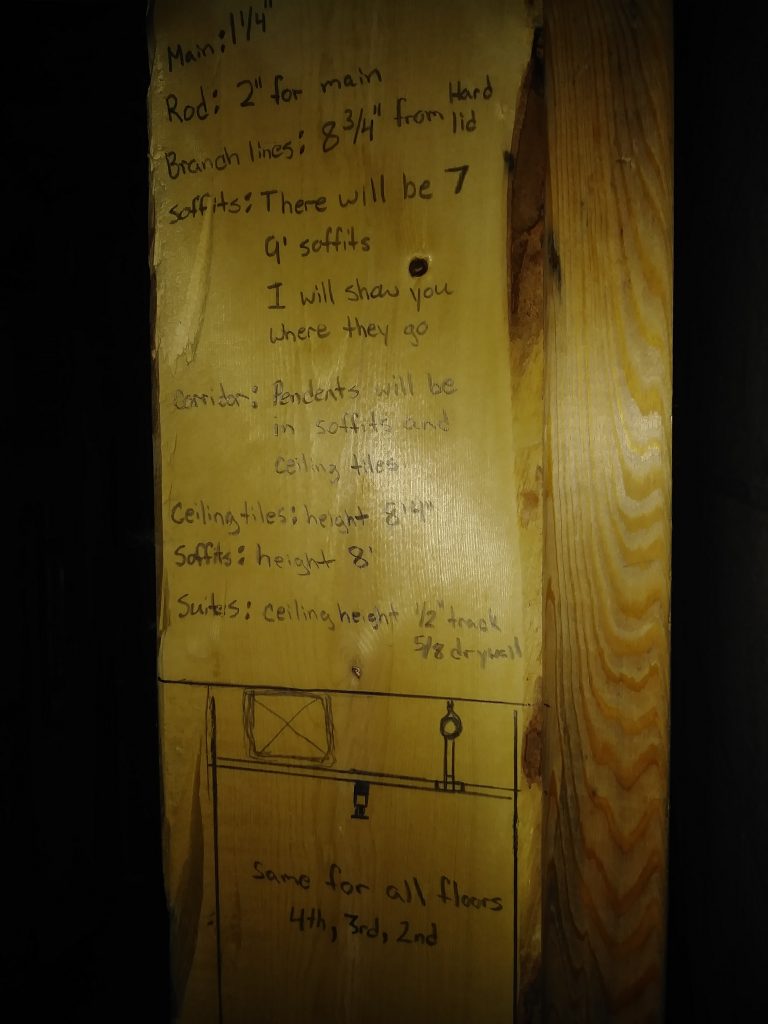 Main: 1 1/4"
Rod: 2" for main
Branch lines: 8 3/4" from Hard lid
Soffits: There will be 7
9' soffits
I will show you
where they go
Corridor: Pendents will be
in soffits and
ceiling tiles
Ceiling tiles: height 8'4"
Soffits: height 8'
Suites: ceiling height 1/2" track
5/8 drywall
Same for all floors
4th, 3rd, 2nd